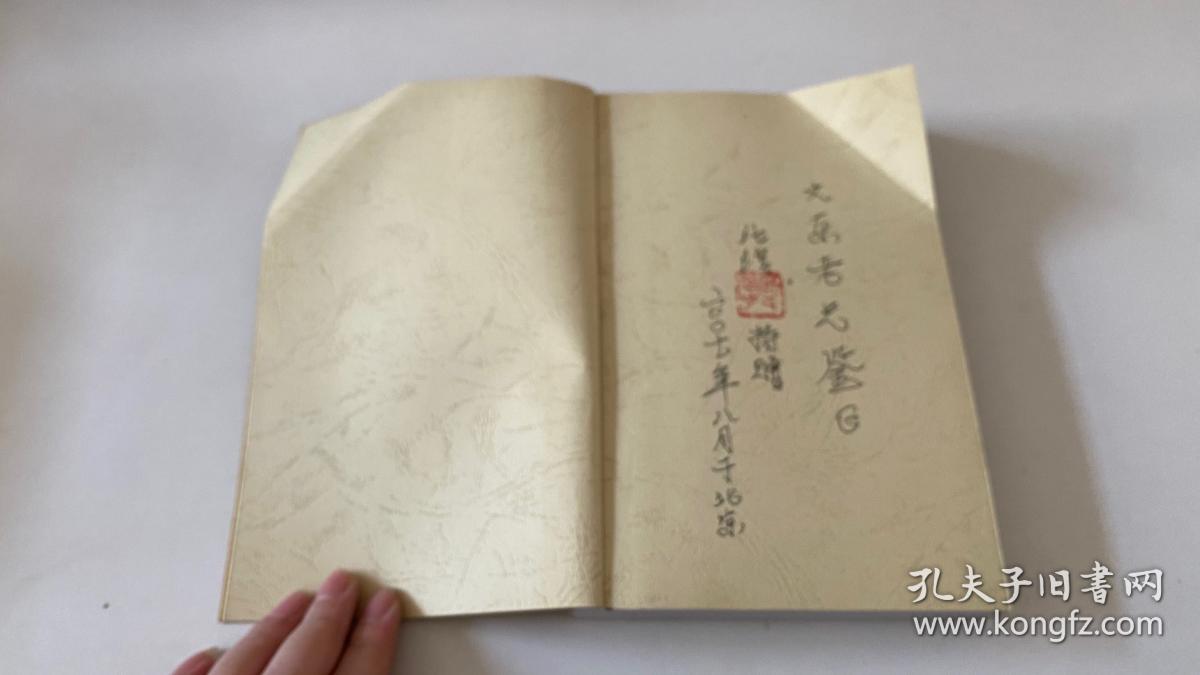 文 老兄鉴正
持赠
二〇〇七年八月于北京
孔夫子旧書网
www.kongfz.com